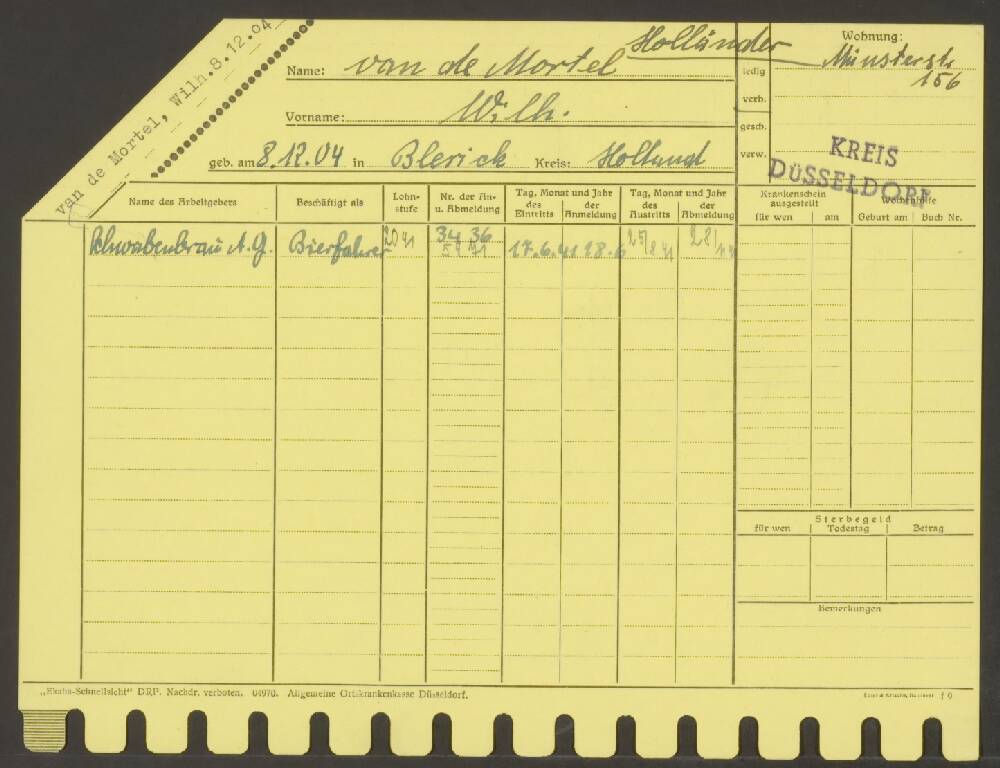 van de Mortel, Wilh. 8.12.04
Name: van de Mortel Holländer
Vorname: Wilh.
geb. am 8.12.04 in Blerick Kreis: Holland
ledig
verh.
gesch.
verw.
Wohnung:
Münsterstr
156
KREIS
DÜSSELDORF
Name des Arbeitgebers
Beschäftigt als
Lohn-
stufe
Nr. der An-
u. Abmeldung
Tag, Monat und Jahr
des Eintritts
der Anmeldung
Tag, Monat und Jahr
des Austritts
der Abmeldung
Krankenschein
ausgestellt
für wen
am
Wochenhilfe
Geburt am
Buch Nr.
Schwabenbräu A.G.
Bierfahrer
20
34 36
17.6.41
18.6
25/8 41
28/
Sterbegeld
für wen
Todestag
Betrag
Bemerkungen
„Ekaha-Schnellsicht“ DRP. Nachdr. verboten. 04970. Allgemeine Ortskrankenkasse Düsseldorf.